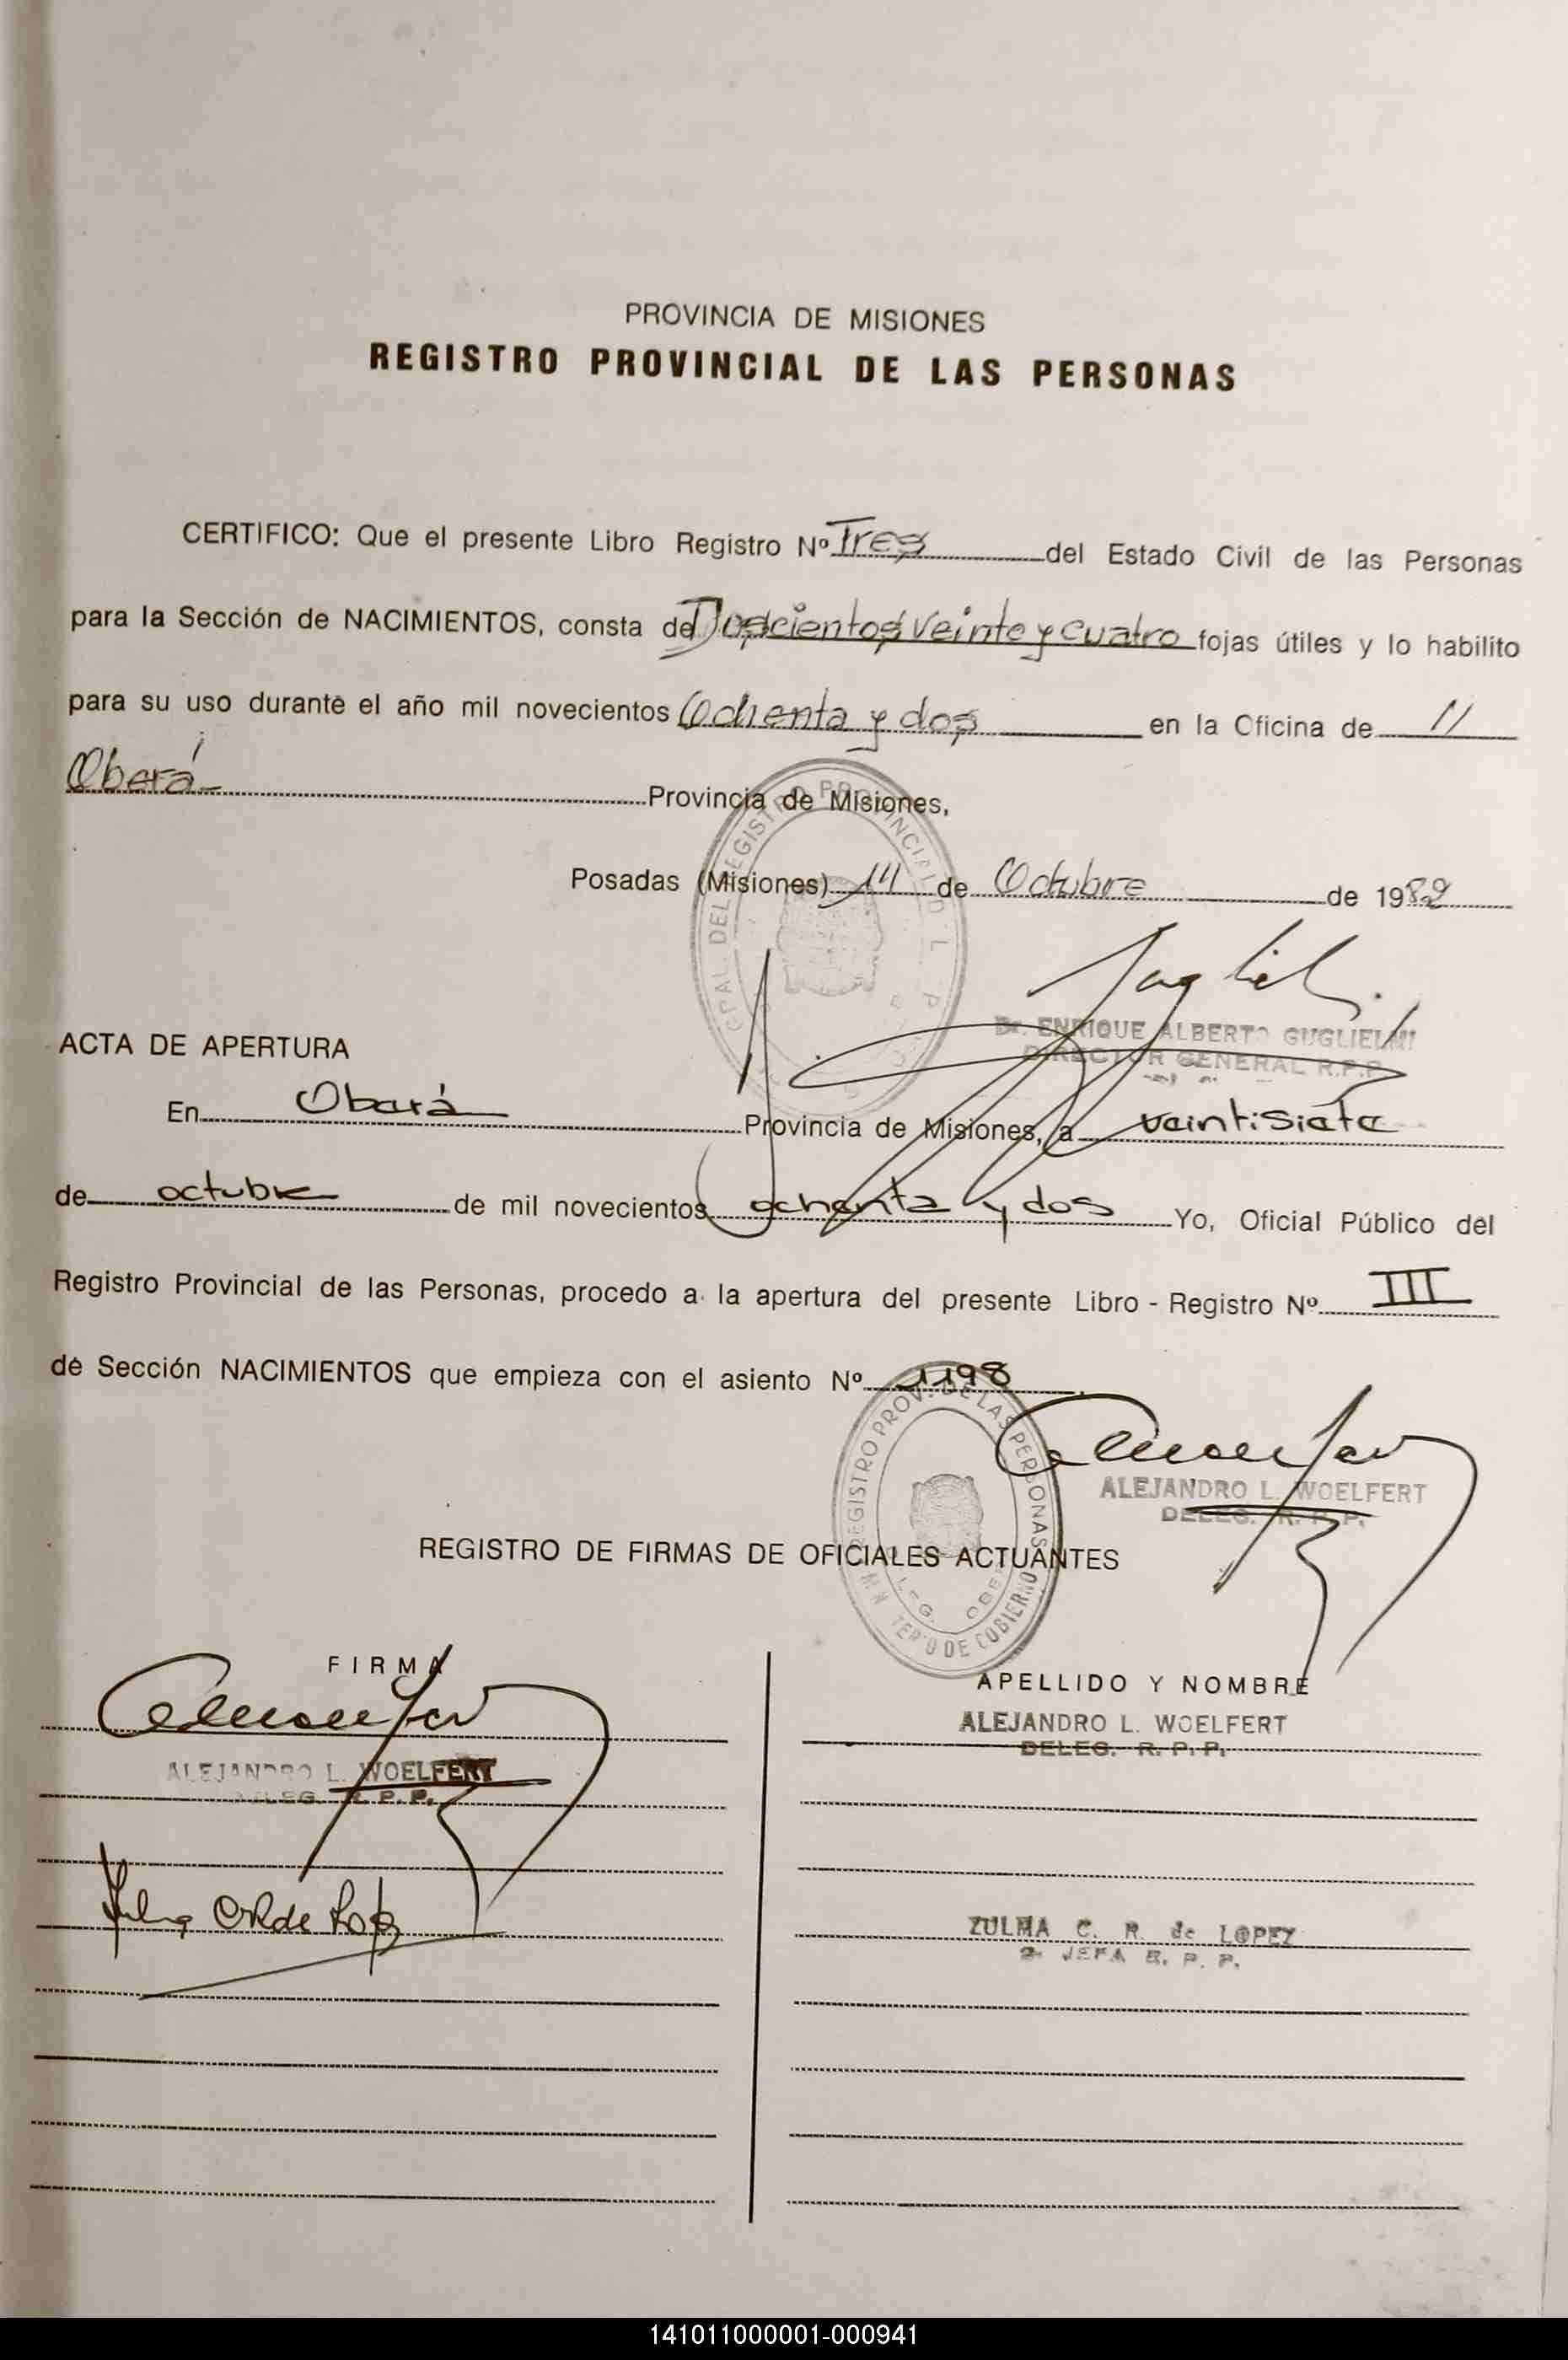 PROVINCIA DE MISIONES
REGISTRO PROVINCIAL DE LAS PERSONAS
CERTIFICO: Que el presente Libro Registro Nº Tres del Estado Civil de las Personas
para la Sección de NACIMIENTOS, consta de Doscientos veinte y cuatro fojas útiles y lo habilito
para su uso durante el año mil novecientos Ochenta y dos en la Oficina de //
Oberá Provincia de Misiones,
Posadas (Misiones) 14 de Octubre de 1982
Dr. ENRIQUE ALBERTO GUGLIELMI
DIRECTOR GENERAL R.P.P.
ACTA DE APERTURA
En Oberá Provincia de Misiones, a veintisiete
de octubre de mil novecientos ochenta y dos Yo, Oficial Público del
Registro Provincial de las Personas, procedo a la apertura del presente Libro - Registro Nº III
de Sección NACIMIENTOS que empieza con el asiento Nº 1198.
REGISTRO PROV. DE LAS PERSONAS
ALEJANDRO L. WOELFERT
DELEG. R. P. P.
REGISTRO DE FIRMAS DE OFICIALES ACTUANTES
FIRMA
APELLIDO Y NOMBRE
ALEJANDRO L. WOELFERT
DELEG. R. P. P.
ALEJANDRO L. WOELFERT
DELEG. R. P. P.
ZULMA C. R. de LOPEZ
2- JEFA R. P. P.
141011000001-000941